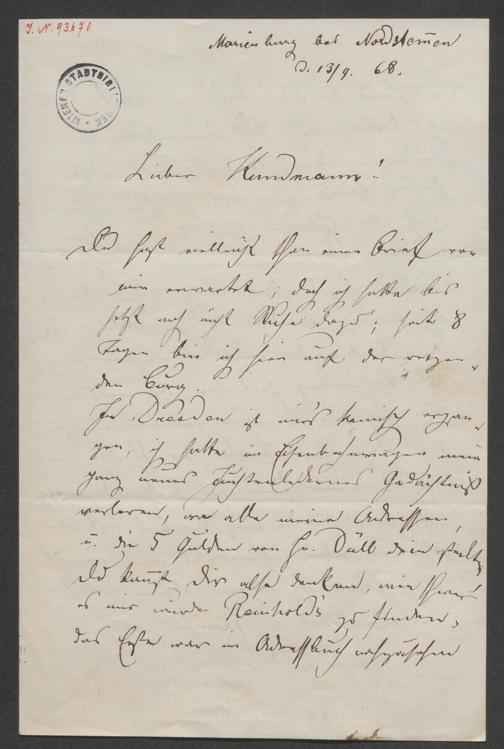 J. N. 93.670
WIENER STADTBIBLIOTHEKEN
Marienburg bei Nordstemen
d. 13/9. 68.
Lieber Kundmann!
Du hast vielleicht schon einen Brief von
mir erwartet, doch ich hatte bis
jetzt noch nicht Ruhe dazu; seit 8
Tagen bin ich hier auf der reizen-
den Burg.
In Dresden ist mir's komisch ergan-
gen, ich hatte im Eisenbahnwagen mein
ganz neues juchtenledernes Gedächtniß
verloren, wo alle meine Adressen,
u. die 5 Gulden von Hr. Düll drin
Du kannst Dir also denken, wie schwer
es mir wurde Reinhold's zu finden,
das Erste war im Adreßbuch nachzusehen